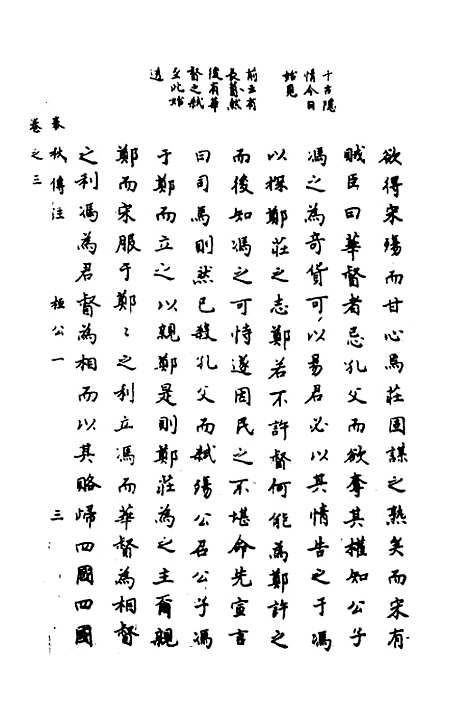 十古隱
情今日
始見
前云有
長葛然
後有華
督之弒
至此始
透
欲得宋殤而甘心焉莊固謀之熟矣而宋有
賊臣曰華督者忌孔父而欲奪其權知公子
馮之為奇貨可以易君必以其情告之于馮
以探鄭莊之志鄭若不許督何能為鄭許之
而後知馮之可恃遂因民之不堪命先宣言
曰司馬則然已殺孔父而弒殤公召公子馮
于鄭而立之以親鄭是則鄭莊為之主爾親
鄭而宋服于鄭〻之利立馮而華督為相督
之利馮為君督為相而以其賂歸四國四國
春秋傳注 桓公一 三
卷之三